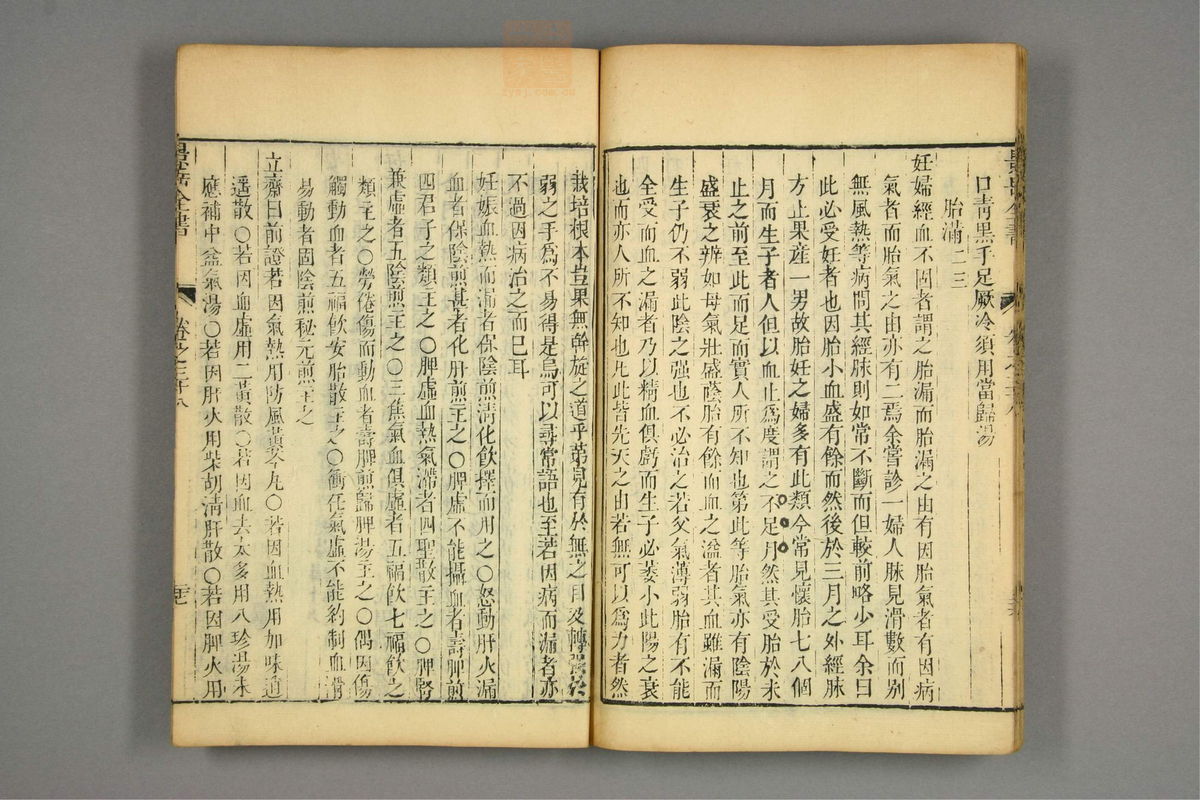 口靑黑手足厥冷須用當歸湯
胎漏二三
妊婦經血不固者謂之胎漏而胎漏之由有因胎氣者有因病
氣者而胎氣之由亦有二焉余嘗診一婦人脉見滑數而别
無風熱等病問其經脉則如常不斷而但較前略少耳余曰
此必受妊者也因胎小血盛有餘而然後於三月之外經脉
方止果産一男故胎妊之婦多有此類今常見懷胎七八個
月而生子者人但以血止爲度謂之不足月然其受胎於未
止之前至此而足而實人所不知也第此等胎氣亦有陰陽
盛衰之辨如母氣壯盛蔭胎有餘而血之溢者其血雖漏而
生子仍不弱此陰之强也不必治之若父氣薄弱胎有不能
全受而血之漏者乃以精血俱虧而生子必萎小此陽之衰
也而亦人所不知也凡此皆先天之由若無可以爲力者然
栽培根本豈果無斡旋之道乎第見有於無之目及轉強於
弱之手爲不易得是烏可以尋常語也至若因病而漏者亦
不過因病治之而已耳
妊娠血熱而漏者保陰煎淸化飮擇而用之〇怒動肝火漏
血者保陰煎甚者化肝煎主之〇脾虛不能攝血者壽脾煎
四君子之類主之〇脾虛血熱氣滯者四聖散主之〇脾腎
兼虛者五陰煎主之〇三焦氣血俱虛者五福飮七福飮之
類主之〇勞倦傷而動血者壽脾煎歸脾湯主之〇偶因傷
觸動血者五福飮安胎散主之〇衝任氣虛不能約制血滑
易動者固陰煎秘元煎主之
立齋曰前證若因氣熱用防風黃芩丸〇若因血熱用加味逍
遥散〇若因血虛用二黃散〇若因血去太多用八珍湯未
應補中益氣湯〇若因肝火用柴胡淸肝散〇若因脾火用